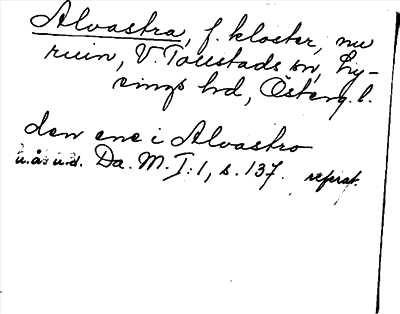 Alvastra, f. kloster, nu
ruin, V. Tollstads sn, Ly-
sings hd, Österg. l.
den ene i Alvastro
u.å. u.d. Da. M. I:1, s. 137. referat.